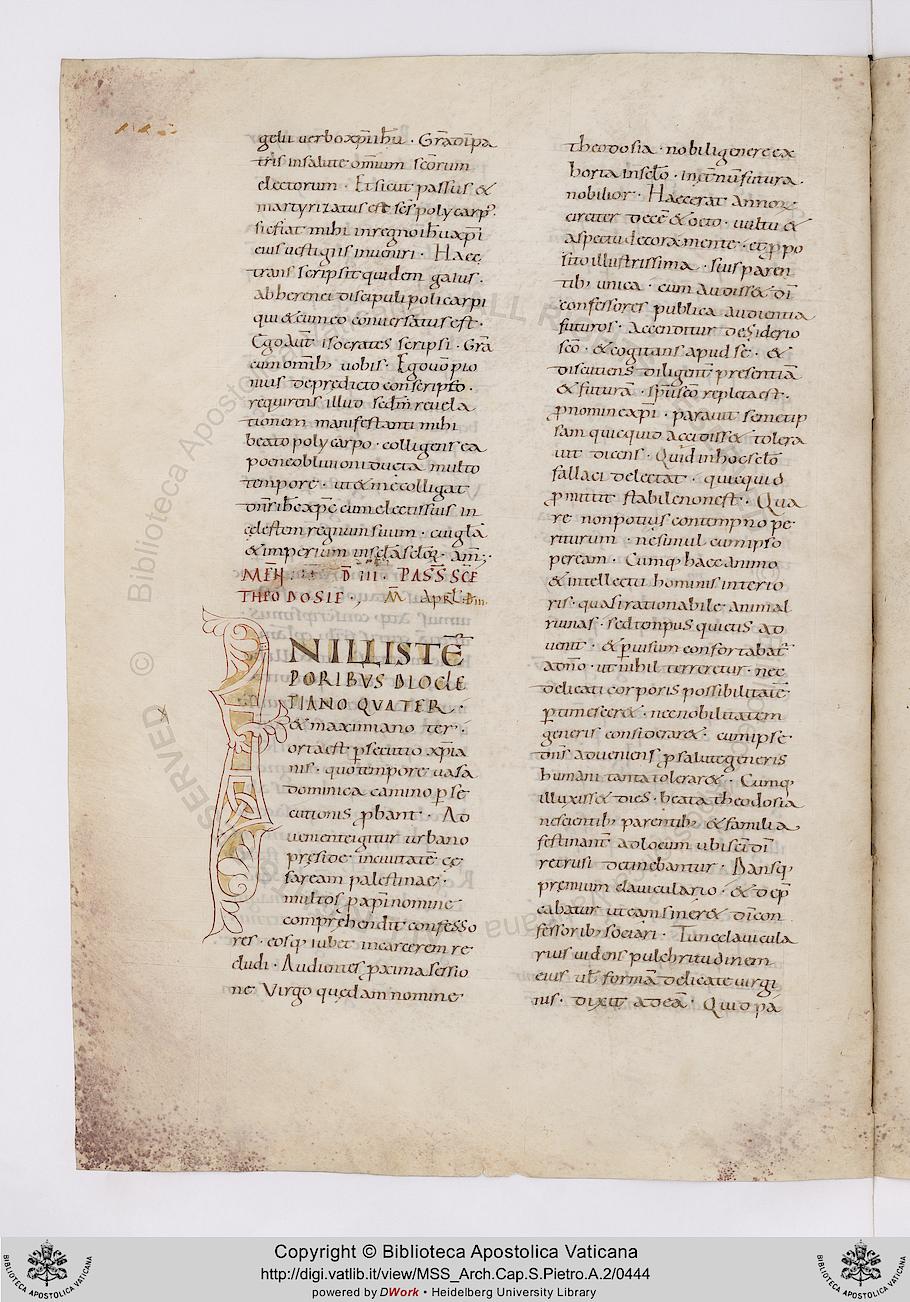 gelii uerbo xp̄i ihū · Gr̄a dī pa
tris in salute om̄ium sc̄orum
electorum · Et sicut passus &
martyrizatus est sc̄s polycarp᷒·
sic fiat mihi in regno ihū xp̄i
eius uestigiis inueniri · Haec
transscripsit quidem gaius ·
ab herenei discipuli policarpi
qui & cum eo conuersatus est ·
Ego aut̄ isocrates scripsi · Gr̄a
cum omīb; uobis · Ego uō pio
nius de predicto conscripto ·
requirens illud sed̄m reuela
tionem manifestanti mihi
beato polycarpo · colligens ea
poene obliuioni ducta multo
tempore · ut & me colligat
dn̄s ih̄c xp̄c cum electis suis in
celestem regnum suum · cui gl̄a
& imperium in scl̄a scl̄oꝝ · am̄ ;
MEN̄ D̄ III · PASS̄ S̄CE
THEODOSIE · , M̄ APRL̄ · D̄ III
IN ILLIS TĒ
PORIBVS DIOCLE
TIANO QVATER ·
& maximiano ter ·
orta est ꝑsecutio xp̄ia
nis · quo tempore uasa
dominica camino ꝑse
cutionis ꝓbant̄ · Ad
ueniente igitur urbano
preside · in ciuitatē ce
saream palestinae ·
multos xp̄i nomine
comprehendit confesso
res · eosq; iubet in carcerem re
cludi · Audientes proxima sessio
ne · Virgo quedam nomine
theodosia · nobili genere ex
horta in sclō · in xp̄ nū futura ·
nobilior · Haec erat annoꝝ ·
circiter decē & octo · uultu &
aspectu decora · mente · et ꝓpo
sito illustrissima · suis paren
tib; unica · cum audiss& dī
confessores publica audientia
futuros · accenditur desiderio
sc̄o · & cogitans apud se · &
discutiens diligent̄ presentiā
& futurā · sp̄u sc̄o repleta est ·
ꝓ nomine xp̄i · parauit semetip
sam quicquid accidiss& tolera
uit dicens · Quid in hoc sclō
fallaci delectat · quicquid
ꝓmittit stabile non est · Qua
re non potius contempno pe
riturum · ne simul cum ipso
peream · Cumq; haec animo
& intellectu hominis interio
ris · quasi rationabile animal
ruinas · sed tempus quietis ad
uenit · & puisum confortabat᷒
a dn̄o · ut nihil terreretur · nec
delicati corporis possibilitatē
ꝑtimescer& · nec nobilitatem
generis considerar& · cum ipse
dn̄s adueniens ꝓ salute generis
humani tanta tolerar& · Cumq;
illuxiss& dies · beata theodosia
nescientib; parentib; & familia
festinant̄ ad locum ubi sc̄i dī
retrusi detinebantur · Dansq;
premium clauiculario · & dep̄
cabatur ut eam siner& dī con
fessorib; sociari · Tunc clauicula
rius uidens pulchritudinem
eius ul̄ formā delicate uirgi
nis · dixit ad eā · Quid pa
Copyright © Biblioteca Apostolica Vaticana
http://digi.vatlib.it/view/MSS_Arch.Cap.S.Pietro.A.2/0444
powered by DWork • Heidelberg University Library